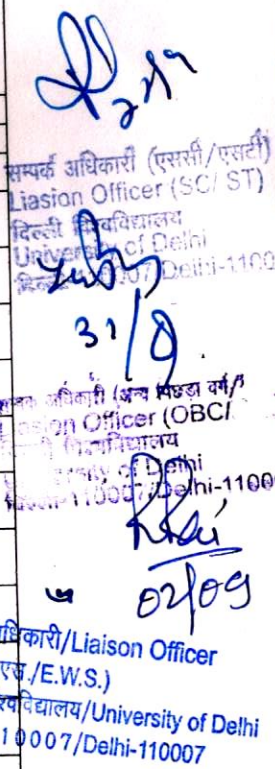 सम्पर्क अधिकारी (एससी/एसटी)
Liasion Officer (SC/ ST)
दिल्ली विश्वविद्यालय
University of Delhi
0007/Delhi-1100
31/8
अधिकारी (अन्य पिछड़ा वर्ग/
Officer (OBC/
of Delhi
110007/Delhi-1100
02/09
धिकारी/Liaison Officer
एस./E.W.S.)
श्वविद्यालय/University of Delhi
10007/Delhi-110007